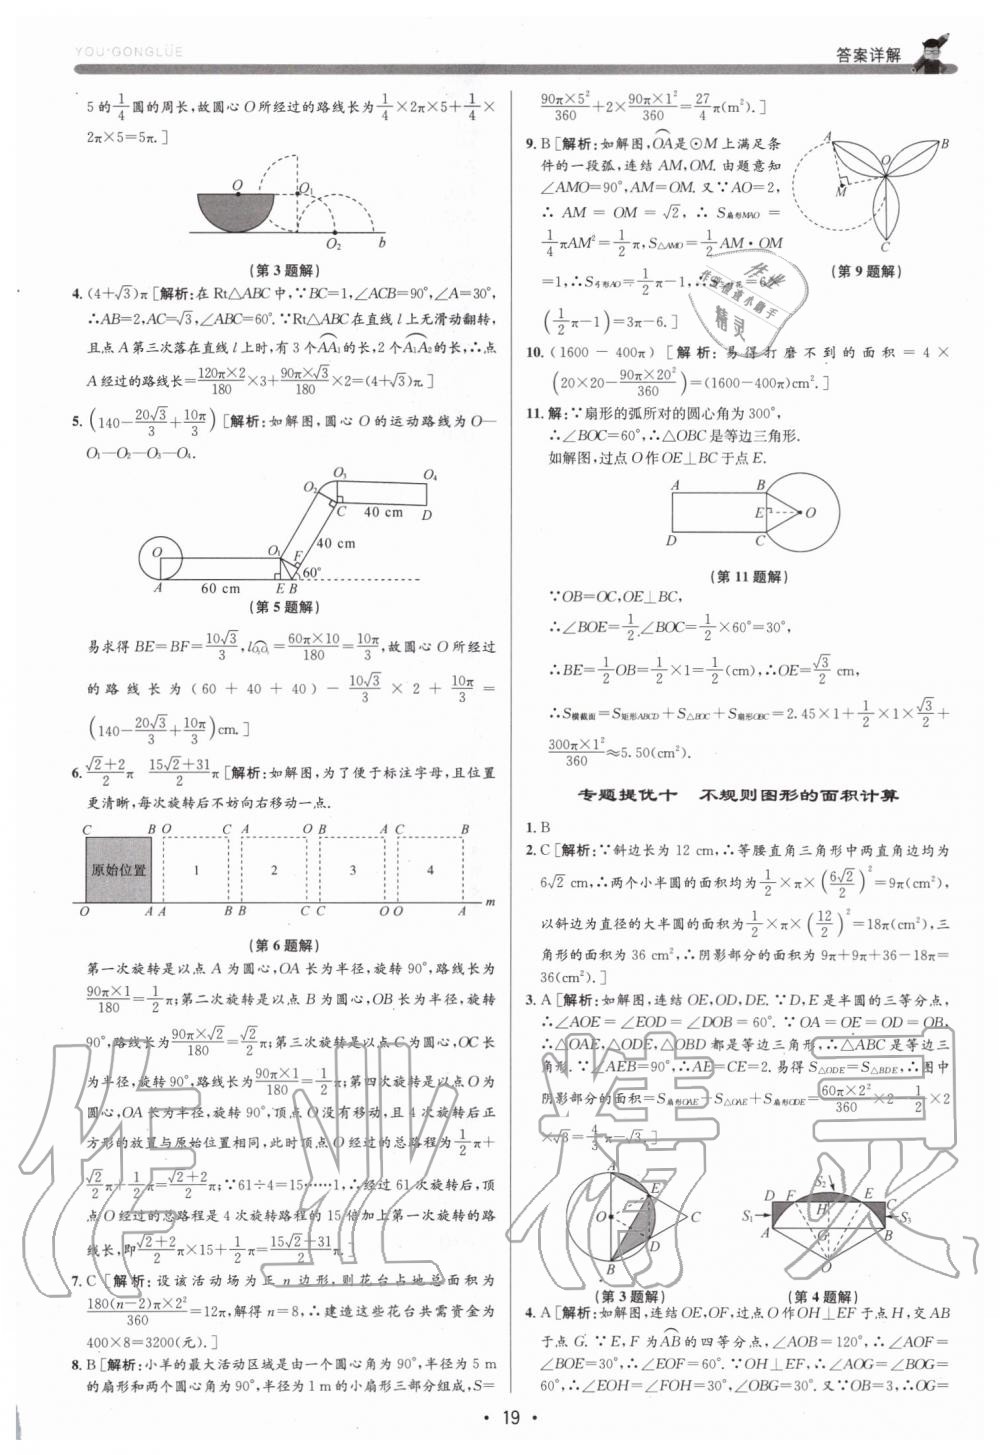 YOU·GONGLÜE
答案详解
5的1/4圆的周长,故圆心O所经过的路线长为1/4×2π×5+1/4×
2π×5=5π.]
O O₁ O₂ b
(第3题解)
4. (4+√3)π [解析:在Rt△ABC中,∵BC=1,∠ACB=90°,∠A=30°,
∴AB=2,AC=√3,∠ABC=60°.∵Rt△ABC在直线l上无滑动翻转,
且点A第三次落在直线l上时,有3个AA₁的长,2个A₁A₂的长,∴点
A经过的路线长=120π×2/180×3+90π×√3/180×2=(4+√3)π.]
5. (140-20√3/3+10π/3) [解析:如解图,圆心O的运动路线为O—
O₁—O₂—O₃—O₄.
O₂ O₃ O₄
C 40 cm D
40 cm
O O₁ F
60°
A 60 cm E B
(第5题解)
易求得BE=BF=10√3/3,lO₂O₃=60π×10/180=10π/3,故圆心O所经过
的路线长为(60+40+40)-10√3/3×2+10π/3=
(140-20√3/3+10π/3)cm.]
6. (√2+2)/2π (15√2+31)/2π [解析:如解图,为了便于标注字母,且位置
更清晰,每次旋转后不妨向右移动一点.
C B O C A O B A C B
原始位置 1 2 3 4
O A A B B C C O O A m
(第6题解)
第一次旋转是以点A为圆心,OA长为半径,旋转90°,路线长为
90π×1/180=1/2π;第二次旋转是以点B为圆心,OB长为半径,旋转
90°,路线长为90π×√2/180=√2/2π;第三次旋转是以点C为圆心,OC长
为半径,旋转90°,路线长为90π×1/180=1/2π;第四次旋转是以点O为
圆心,OA长为半径,旋转90°,顶点O没有移动,且4次旋转后正
方形的放置与原始位置相同,此时顶点O经过的总路程为1/2π+
√2/2π+1/2π=(√2+2)/2π;∵61÷4=15……1,∴经过61次旋转后,顶
点O经过的总路程是4次旋转路程的15倍加上第一次旋转的路
线长,即(√2+2)/2π×15+1/2π=(15√2+31)/2π.]
7. C [解析:设该活动场为正n边形,则花台占地总面积为
180(n-2)π×2²/360=12π,解得n=8,∴建造这些花台共需资金为
400×8=3200(元).]
8. B [解析:小羊的最大活动区域是由一个圆心角为90°,半径为5 m
的扇形和两个圆心角为90°,半径为1 m的小扇形三部分组成,S=
90π×5²/360+2×90π×1²/360=27/4π(m²).]
9. B [解析:如解图,OA是⊙M上满足条
件的一段弧,连结AM,OM.由题意知
∠AMO=90°,AM=OM.又∵AO=2,
∴AM=OM=√2,∴S扇形MAO=
1/4πAM²=1/2π,S△AMO=1/2AM·OM
=1,∴S弓形AO=1/2π-1,∴S三叶花=6×
(1/2π-1)=3π-6.]
A B O M C
(第9题解)
作业检查小助手
精灵
10. (1600-400π) [解析:易得打磨不到的面积=4×
(20×20-90π×20²/360)=(1600-400π)cm².]
11. 解:∵扇形的弧所对的圆心角为300°,
∴∠BOC=60°,∴△OBC是等边三角形.
如解图,过点O作OE⊥BC于点E.
A B E O D C
(第11题解)
∵OB=OC,OE⊥BC,
∴∠BOE=1/2∠BOC=1/2×60°=30°,
∴BE=1/2OB=1/2×1=1/2(cm),∴OE=√3/2 cm,
∴S横截面=S矩形ABCD+S△BOC+S扇形OBC=2.45×1+1/2×1×√3/2+
300π×1²/360≈5.50(cm²).
专题提优十 不规则图形的面积计算
1. B
2. C [解析:∵斜边长为12 cm,∴等腰直角三角形中两直角边均为
6√2 cm,∴两个小半圆的面积均为1/2×π×(6√2/2)²=9π(cm²),
以斜边为直径的大半圆的面积为1/2×π×(12/2)²=18π(cm²),三
角形的面积为36 cm²,∴阴影部分的面积为9π+9π+36-18π=
36(cm²).]
3. A [解析:如解图,连结OE,OD,DE.∵D,E是半圆的三等分点,
∴∠AOE=∠EOD=∠DOB=60°.∵OA=OE=OD=OB,
∴△OAE,△ODE,△OBD都是等边三角形,∴△ABC是等边三
角形.∵∠AEB=90°,∴AE=CE=2.易得S△ODE=S△BDE,∴图中
阴影部分的面积=S扇形OAE-S△OAE+S扇形ODE=60π×2²/360×2-1/2×2
×√3=4/3π-√3.]
A E O C D B
(第3题解)
D F S₂ E C H S₁ S₃ A G B O
(第4题解)
4. A [解析:如解图,连结OE,OF,过点O作OH⊥EF于点H,交AB
于点G.∵E,F为AB的四等分点,∠AOB=120°,∴∠AOF=
∠BOE=30°,∴∠EOF=60°.∵OH⊥EF,∴∠AOG=∠BOG=
60°,∴∠EOH=∠FOH=30°,∠OBG=30°.又∵OB=3,∴OG=
作业精灵
• 19 •